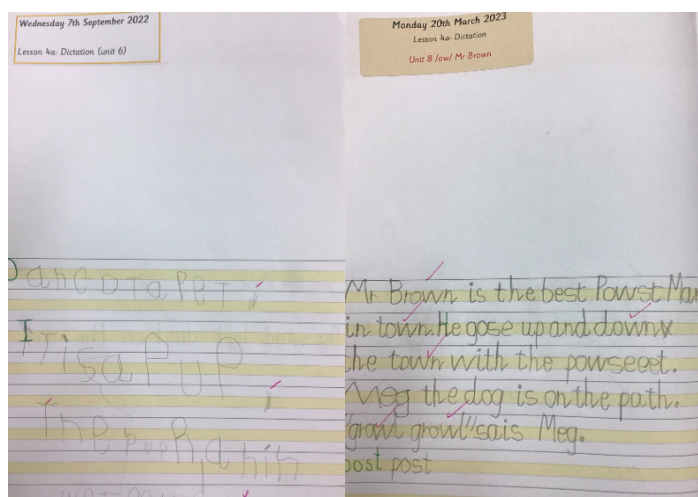 Wednesday 7th September 2022
Lesson 4a: Dictation (unit 6)
I
T is a PuP
The pup
Monday 20th March 2023
Lesson 4a- Dictation
Unit 8 /ow/ Mr Brown
Mr Brown is the best Powst Man
in town. He gose up and down x
the town with the powseeet.
Meg the dog is on the path.
"growl growl" sais Meg.
post post